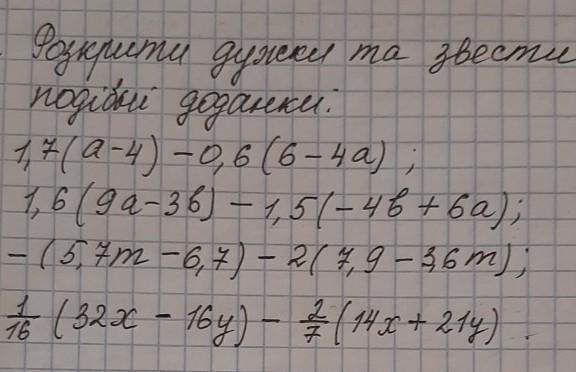 Розкрити дужки та звести
подібні доданки:
1,7(a-4) - 0,6(6-4a);
1,6(9a-3b) - 1,5(-4b+6a);
-(5,7m-6,7) - 2(7,9-3,6m);
1/16 (32x - 16y) - 2/7 (14x + 21y).